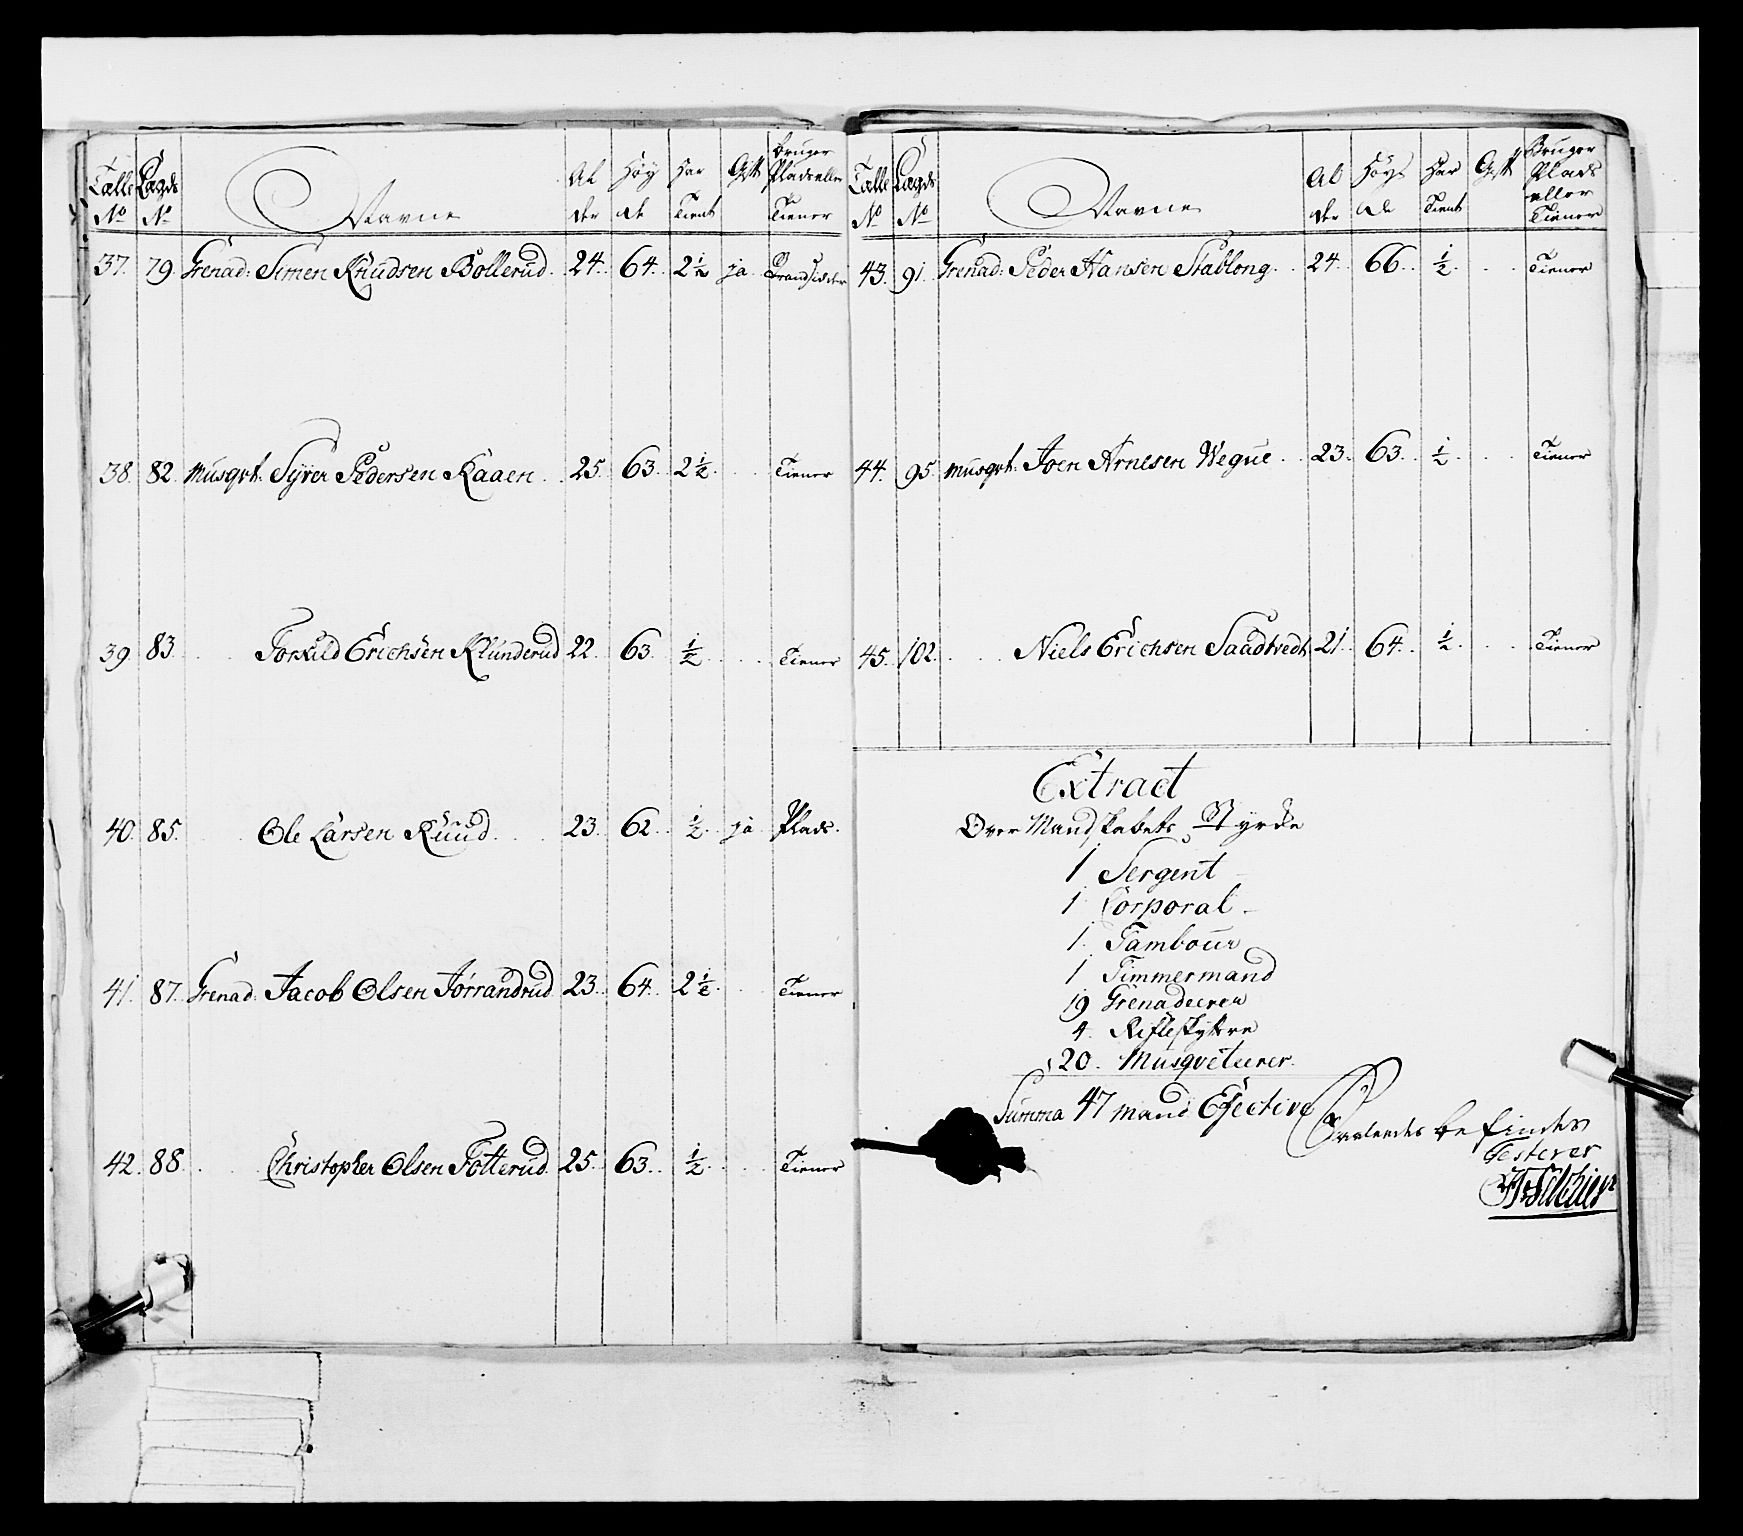 Talle No Lægds No Navne Alder Høyde Har Tient Gift Bruger Plads eller Tiener
37. 79. Grenad: Simen Knudsen Bollerud. 24. 64. 2½ ja
38. 82. Musqvt: Syver Pedersen Kaaen. 25. 63. 2½. Tiener
39. 83. Torkild Erichsen Klunderud 22. 63. ½. Tiener
40. 85. Ole Larsen Ruud. 23. 62. ½. ja Plads.
41. 87. Grenad: Jacob Olsen Jørrandrud 23. 64. 2½. Tiener
42. 88. Christopher Olsen Totterud 25. 63. ½. Tiener
Talle No Lægds No Navne Alder Høyde Har Tient Gift Bruger Plads eller Tiener
43. 91. Grenad: Peder Hansen Stablong. 24. 66. ½. Tiener
44. 95. Musqvt: Joen Arnesen Wegue. 23. 63. ½. Tiener
45. 102. Niels Erichsen Saadtvedt 21. 64. ½. Tiener
Extract
Over Mandskabets Styrke
1 Sergent
1 Corporal
1. Tambour
1 Timmermand
19 Grenadeerer
4. Rifleskyttere
20. Musqveteerer.
Summa 47 mand Efective
Saaledes befindes
Testerer